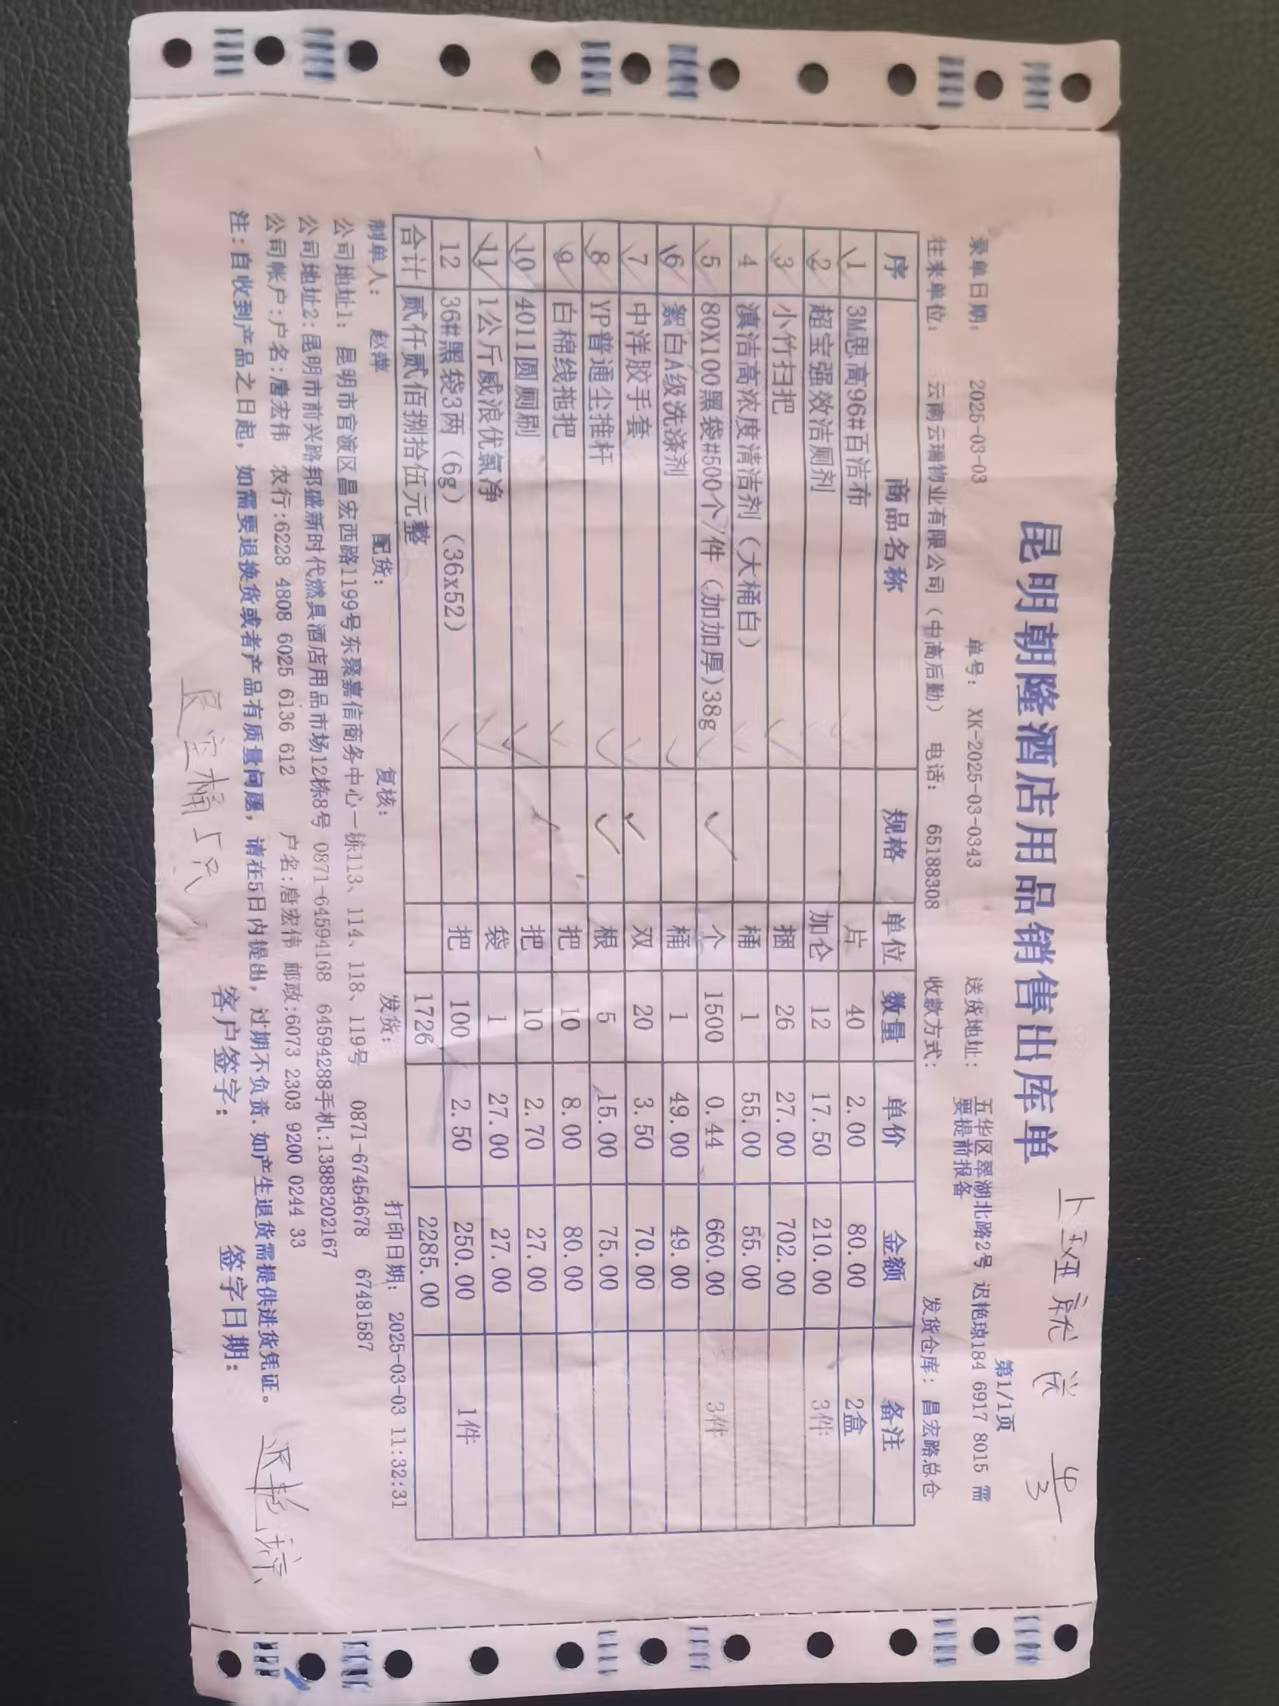 昆明朝隆酒店用品销售出库单
第1/1页
录单日期: 2025-03-03 单号: XK-2025-03-0343 送货地址: 五华区翠湖北路2号 迟艳琼184 6917 8015 需要提前报备
往来单位: 云南云瑞物业有限公司(中高后勤) 电话: 65188308 收款方式: 发货仓库: 昌宏路总仓
序 商品名称 规格 单位 数量 单价 金额 备注
1 3M思高96#百洁布 片 40 2.00 80.00 2盒
2 超宝强效洁厕剂 加仑 12 17.50 210.00 3件
3 小竹扫把 捆 26 27.00 702.00
4 滇洁高浓度清洁剂(大桶白) 桶 1 55.00 55.00
5 80X100黑袋#500个/件(加加厚)38g 个 1500 0.44 660.00 3件
6 絮白A级洗涤剂 桶 1 49.00 49.00
7 中洋胶手套 双 20 3.50 70.00
8 YP普通尘推杆 根 5 15.00 75.00
9 白棉线拖把 把 10 8.00 80.00
10 4011圆厕刷 把 10 2.70 27.00
11 1公斤威浪优氯净 袋 1 27.00 27.00
12 36#黑袋3两(6g)(36x52) 把 100 2.50 250.00 1件
合计 贰仟贰佰捌拾伍元整 1726 2285.00
制单人: 赵萍 配货: 复核: 发货: 打印日期: 2025-03-03 11:32:31
公司地址1: 昆明市官渡区昌宏西路1199号东聚嘉信商务中心一栋113、114、118、119号 0871-67454678 67481587
公司地址2:昆明市前兴路邦盛新时代燃具酒店用品市场12栋8号 0871-64594168 64594288手机:13888202167
公司帐户:户名:唐宏伟 农行:6228 4808 6025 6136 612 户名:唐宏伟 邮政:6073 2303 9200 0244 33
注:自收到产品之日起,如需要退换货或者产品有质量问题,请在5日内提出,过期不负责.如产生退货需提供进货凭证。
客户签字: 签字日期:
迟艳琼